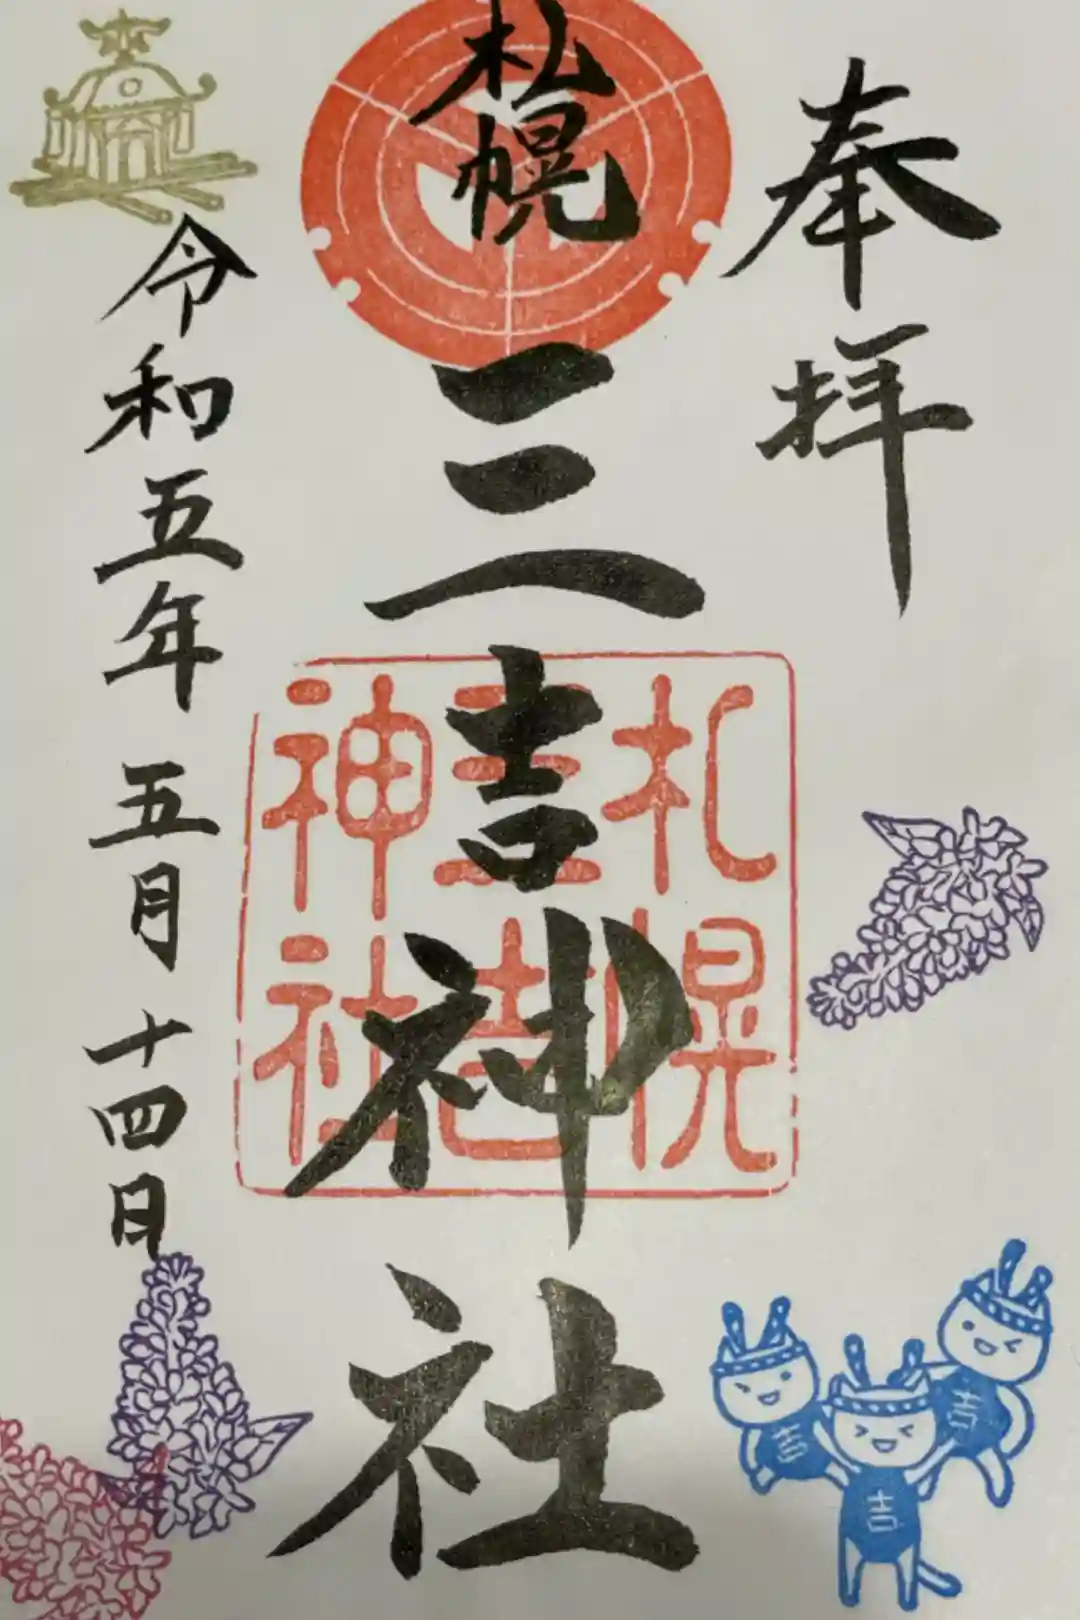 奉拝
札幌
三吉神社
札幌
三吉
神社
令和五年 五月 十四日
吉
吉
吉